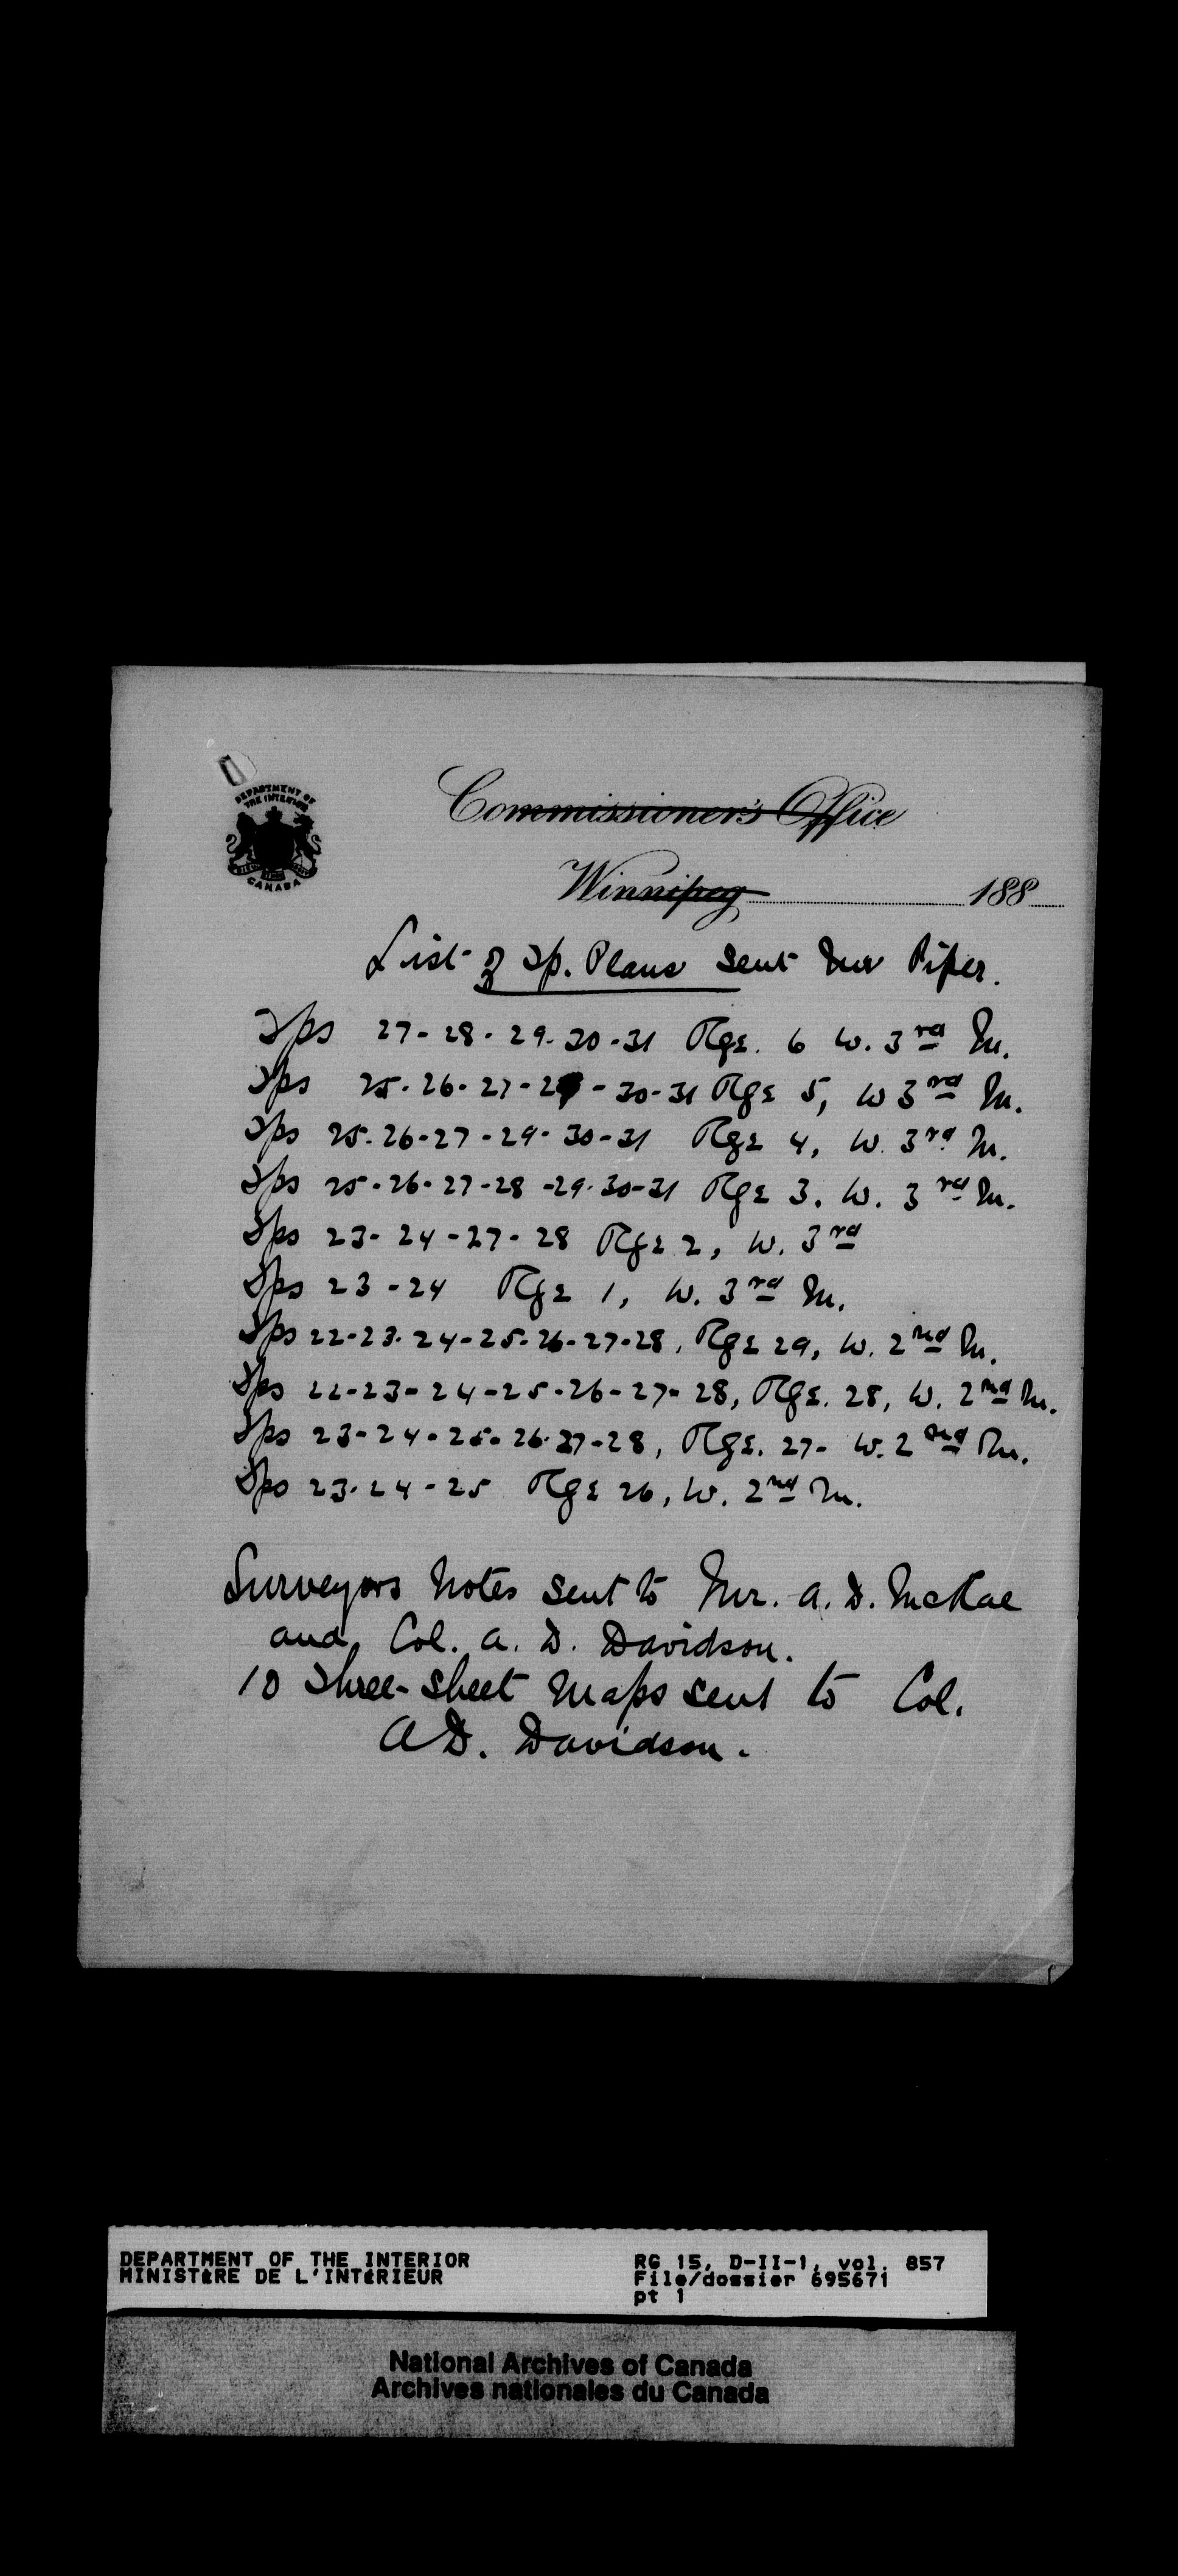 DEPARTMENT OF
THE INTERIOR
CANADA
Commissioner's Office
Winnipeg 188
List of Tp. Plans sent Mr Piper.
Tps 27-28-29-30-31 Rge. 6 W. 3rd M.
Tps 25-26-27-29-30-31 Rge 5, W 3rd M.
Tps 25-26-27-29-30-31 Rge 4, W. 3rd M.
Tps 25-26-27-28-29-30-31 Rge 3. W. 3rd M.
Tps 23-24-27-28 Rge 2, W. 3rd
Tps 23-24 Rge 1, W. 3rd M.
Tps 22-23-24-25-26-27-28, Rge 29, W. 2nd M.
Tps 22-23-24-25-26-27-28, Rge. 28, W. 2nd M.
Tps 23-24-25-26-27-28, Rge. 27- W. 2nd M.
Tps 23-24-25 Rge 26, W. 2nd M.
Surveyors Notes sent to Mr. A. D. McRae
and Col. A. D. Davidson.
10 Three-sheet Maps sent to Col.
A D. Davidson.
DEPARTMENT OF THE INTERIOR RG 15, D-II-1, vol. 857
MINISTÈRE DE L'INTÉRIEUR File/dossier 695671
pt 1
National Archives of Canada
Archives nationales du Canada